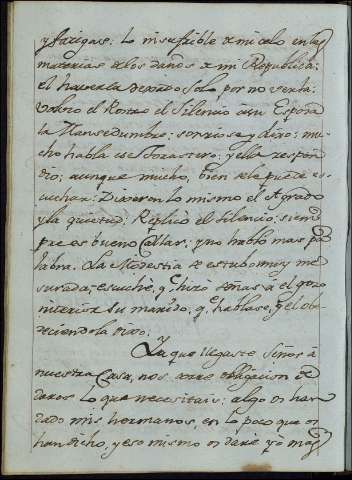 y fatigas: lo insufrible de mi celo en las
materias de los daños de mi Republica:
el haverla dexado solo por no verla.
Volvio el Rostro el Silencio à su Esposa
la Mansedumbre: sonriose, y dixo: mu-
cho habla ese Forastero: y ella respon-
dio; aunque mucho, bien se le puede es-
cuchar: Dixeron lo mismo el Agrado
y la quietud. Replicò el Silencio: siem-
pre es bueno Callar; y no hablo mas pa-
labra. La Modestia se estubo muy me-
surada; escuchè, q.e hizo señas a el gozo
interior su marido, q.e hablase, y el obe-
deciendola dixo:
Ya que llegaste Señor à
nuestra Casa, nos corre obligacion de
daros lo que necesitais: algo os han
dado mis hermanos, en lo poco que os
han dicho, y eso mismo os darè yo mas